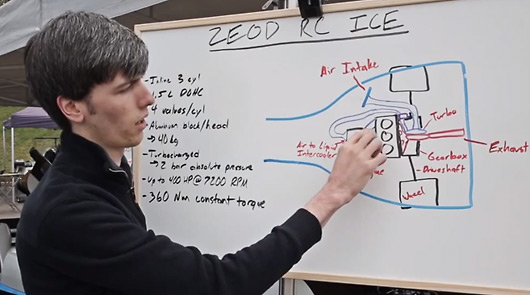 ZEOD RC ICE
- Inline 3 cyl
1.5L DOHC
4 valves/cyl
- Aluminum block/head
→ 40 kg
- Turbocharged
→ 2 bar absolute pressure
- Up to 400 HP @ 7200 RPM
- 360 Nm constant torque
Air Intake
Turbo
Exhaust
Air to Liquid
Intercooler
Gearbox
Driveshaft
Wheel